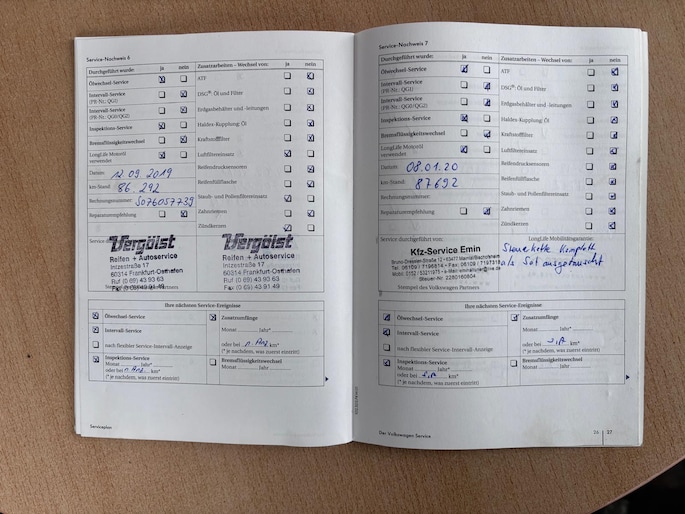 Service-Nachweis 6
Durchgeführt wurde: ja nein
Ölwechsel-Service
Intervall-Service
(PR-Nr.: QG1)
Intervall-Service
(PR-Nr.: QG0/QG2)
Inspektions-Service
Bremsflüssigkeitswechsel
LongLife Motoröl
verwendet
Datum: 12.09.2019
km-Stand: 86.292
Rechnungsnummer: 5076057739
Reparaturempfehlung
Zusatzarbeiten - Wechsel von: ja nein
ATF
DSG®: Öl und Filter
Erdgasbehälter und -leitungen
Haldex-Kupplung: Öl
Kraftstofffilter
Luftfiltereinsatz
Reifendrucksensoren
Reifenfüllflasche
Staub- und Pollenfiltereinsatz
Zahnriemen
Zündkerzen
Service
Vergölst
Reifen + Autoservice
Intzestraße 17
60314 Frankfurt-Osthafen
Ruf (0 69) 43 93 63
Fax (0 69) 43 91 49
Vergölst
Reifen + Autoservice
Intzestraße 17
60314 Frankfurt-Osthafen
Ruf (0 69) 43 93 63
Fax (0 69) 43 91 49
Ihre nächsten Service-Ereignisse
Ölwechsel-Service
Intervall-Service
nach flexibler Service-Intervall-Anzeige
Inspektions-Service
Monat Jahr*
oder bei n. Anz. km*
(* je nachdem, was zuerst eintritt)
Zusatzumfänge
Monat Jahr*
oder bei n. Anz. km*
(* je nachdem, was zuerst eintritt)
Bremsflüssigkeitswechsel
Monat Jahr
Serviceplan
Service-Nachweis 7
Durchgeführt wurde: ja nein
Ölwechsel-Service
Intervall-Service
(PR-Nr.: QG1)
Intervall-Service
(PR-Nr.: QG0/QG2)
Inspektions-Service
Bremsflüssigkeitswechsel
LongLife Motoröl
verwendet
Datum: 08.01.20
km-Stand: 87692
Rechnungsnummer:
Reparaturempfehlung
Zusatzarbeiten - Wechsel von: ja nein
ATF
DSG®: Öl und Filter
Erdgasbehälter und -leitungen
Haldex-Kupplung: Öl
Kraftstofffilter
Luftfiltereinsatz
Reifendrucksensoren
Reifenfüllflasche
Staub- und Pollenfiltereinsatz
Zahnriemen
Zündkerzen
Service durchgeführt von:
Kfz-Service Emin
Stempel des Volkswagen Partners
LongLife Mobilitätsgarantie:
Steuerkette Komplett
als Set ausgetauscht
Ihre nächsten Service-Ereignisse
Ölwechsel-Service
Intervall-Service
nach flexibler Service-Intervall-Anzeige
Inspektions-Service
Monat Jahr*
oder bei km*
(* je nachdem, was zuerst eintritt)
Zusatzumfänge
Monat Jahr*
oder bei km*
(* je nachdem, was zuerst eintritt)
Bremsflüssigkeitswechsel
Monat Jahr
Der Volkswagen Service
26 27